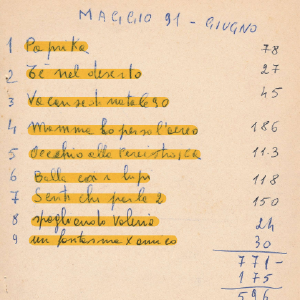 MAGGIO 91 - GIUGNO
1 Paprika 78
2 Tè nel deserto 27
3 Vacanze di natale 90 45
4 Mamma ho perso l'aereo 186
5 Occhio alla perestrojka 113
6 Balla coi lupi 118
7 Senti chi parla 2 150
8 spogliando Valeria 24
9 un fantasma x amico 30
771 -
175
596